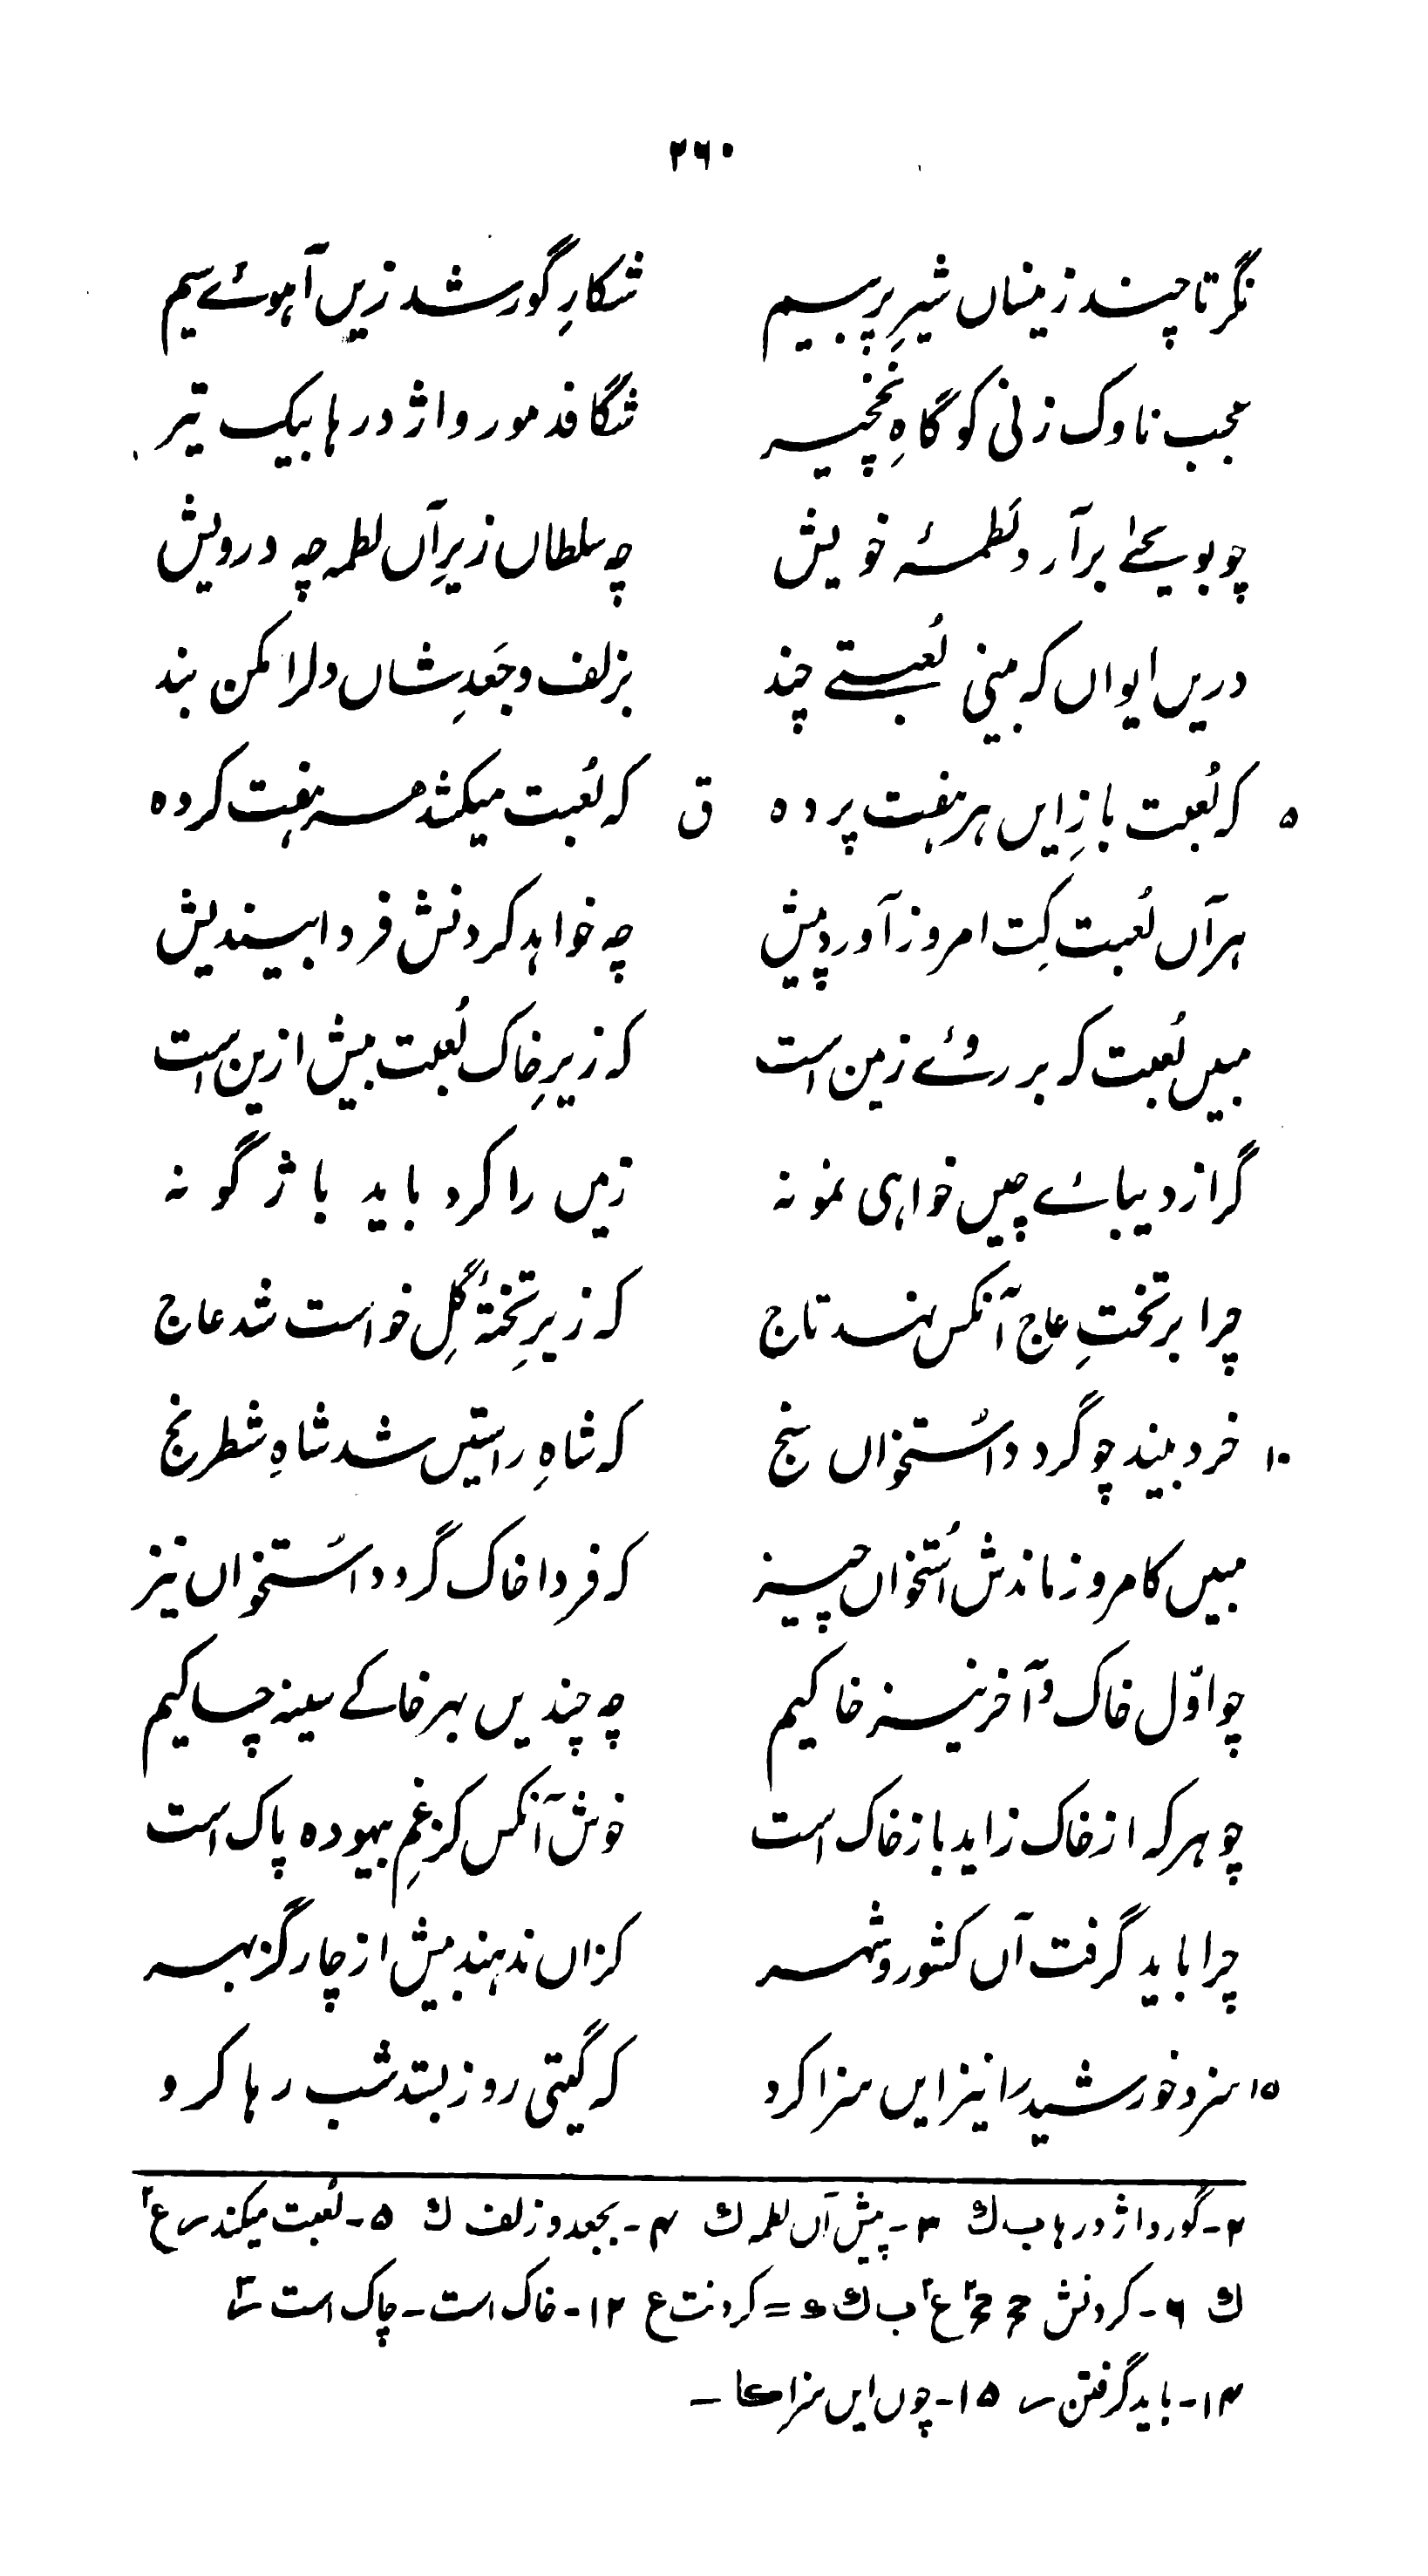 ۲۶۰
نگر تا چند زینساں شیرِ پرسیم شکارِ گور شد زیں آہوئے سیم
عجب ناوک زنی کو گاہِ نخچیر شگافد مور و اژدرہا بیک تیر
چو بویحیٰ برآرد لَطمۂ خویش چہ سلطاں زیرِ آں لطمہ چہ درویش
دریں ایواں کہ بینی لُعبتے چند بزلف و جَعدِ شاں دلرا مکن بند
۵ کہ لُعبت بازِ ایں ہر ہفت پردہ ق کہ لُعبت میکشد ہر ہفت کردہ
ہر آں لُعبت کِت امروز آورد پیش چہ خواہد کردنش فردا بیندیش
مبیں لُعبت کہ بر روئے زمین است کہ زیرِ خاک لُعبت بیش ازین است
گر از دیبائے چیں خواہی نمونہ زمیں را کرد باید باژگونہ
چرا بر تختِ عاج آنکس نہد تاج کہ زیرِ تختۂ گِل خواست شد عاج
۱۰ خرد بیند چو گردد اُستخواں سنج کہ شاہِ راستیں شد شاہِ شطرنج
مبیں کامروز ماندش اُستخواں چیز کہ فردا خاک گردد اُستخواں نیز
چو اوّل خاک و آخر نیز خاکیم چہ چندیں بہر خاکے سینہ چاکیم
چو ہر کہ از خاک زاید باز خاک است خوش آنکس کز غمِ بیہودہ پاک است
چرا باید گرفت آں کشور و شہر کزاں ندہند بیش از چار گز بہر
۱۵ سزد خورشید را نیز ایں سزا کرد کہ گیتی روز بستد شب رہا کرد
۲- گور و اژدرہا ب ك ۳- پیش آں لطمہ ك ۴- بجعد و زلف ك ۵- لُعبت میکند س ع۲
ك ۶- کردنش ح ح۲ ع۲ ب ك = کردنت ع ۱۲- خاک است - چاک است س۲
۱۴- باید گرفتن س ۱۵- چوں ایں سزا کا -